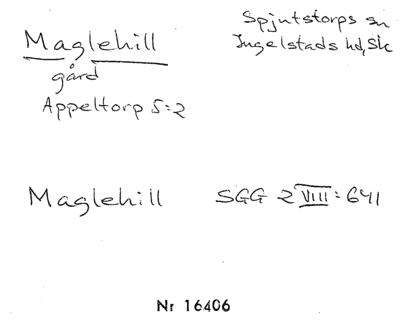 Maglehill
Spjutstorps sn
Ingelstads hd, Sk
gård
Appeltorp 5:2
Maglehill SGG 2 VIII:641
Nr 16406